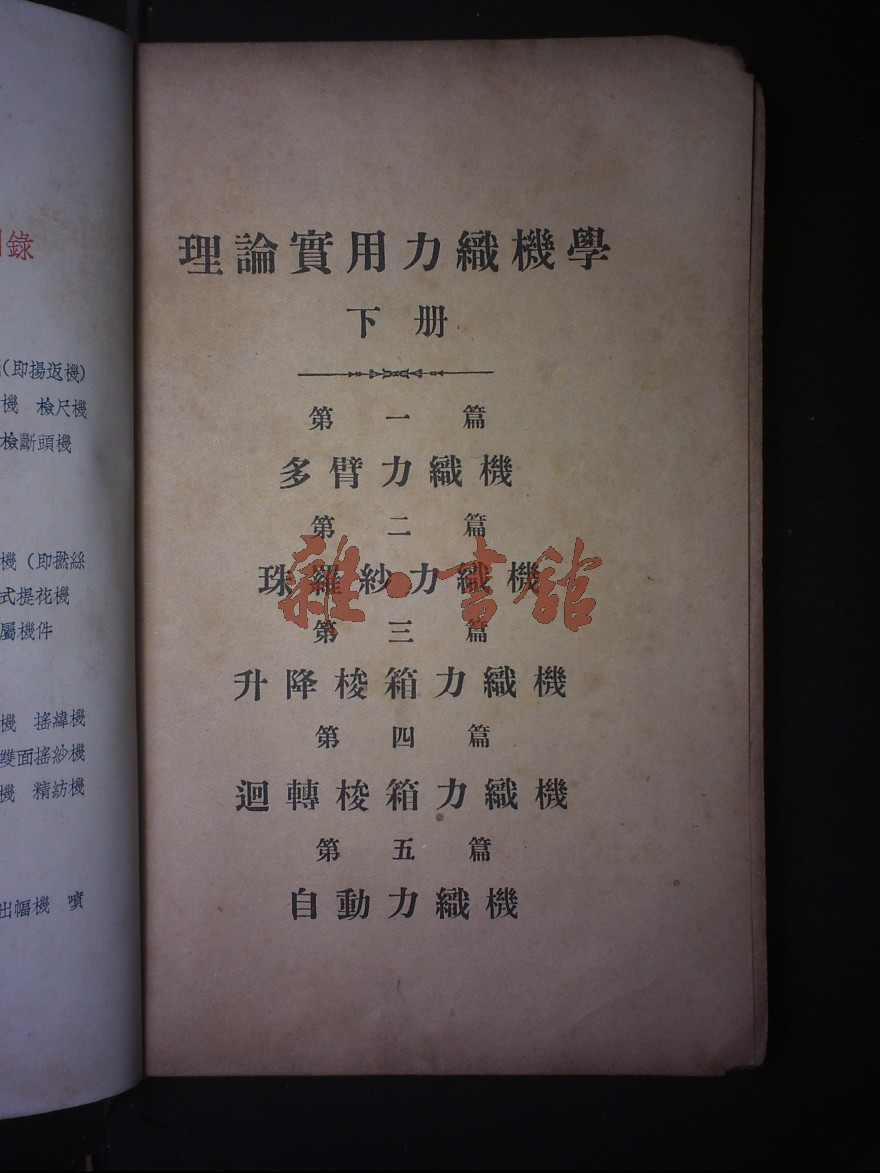 錄
(即揚返機)
機 檢尺機
檢斷頭機
機(即撚絲
式提花機
屬機件
機 搖緯機
雙面搖紗機
機 精紡機
出幅機 噴
理論實用力織機學
下册
第一篇
多臂力織機
第二篇
珠羅紗力織機
雜·書館
第三篇
升降梭箱力織機
第四篇
迴轉梭箱力織機
第五篇
自動力織機